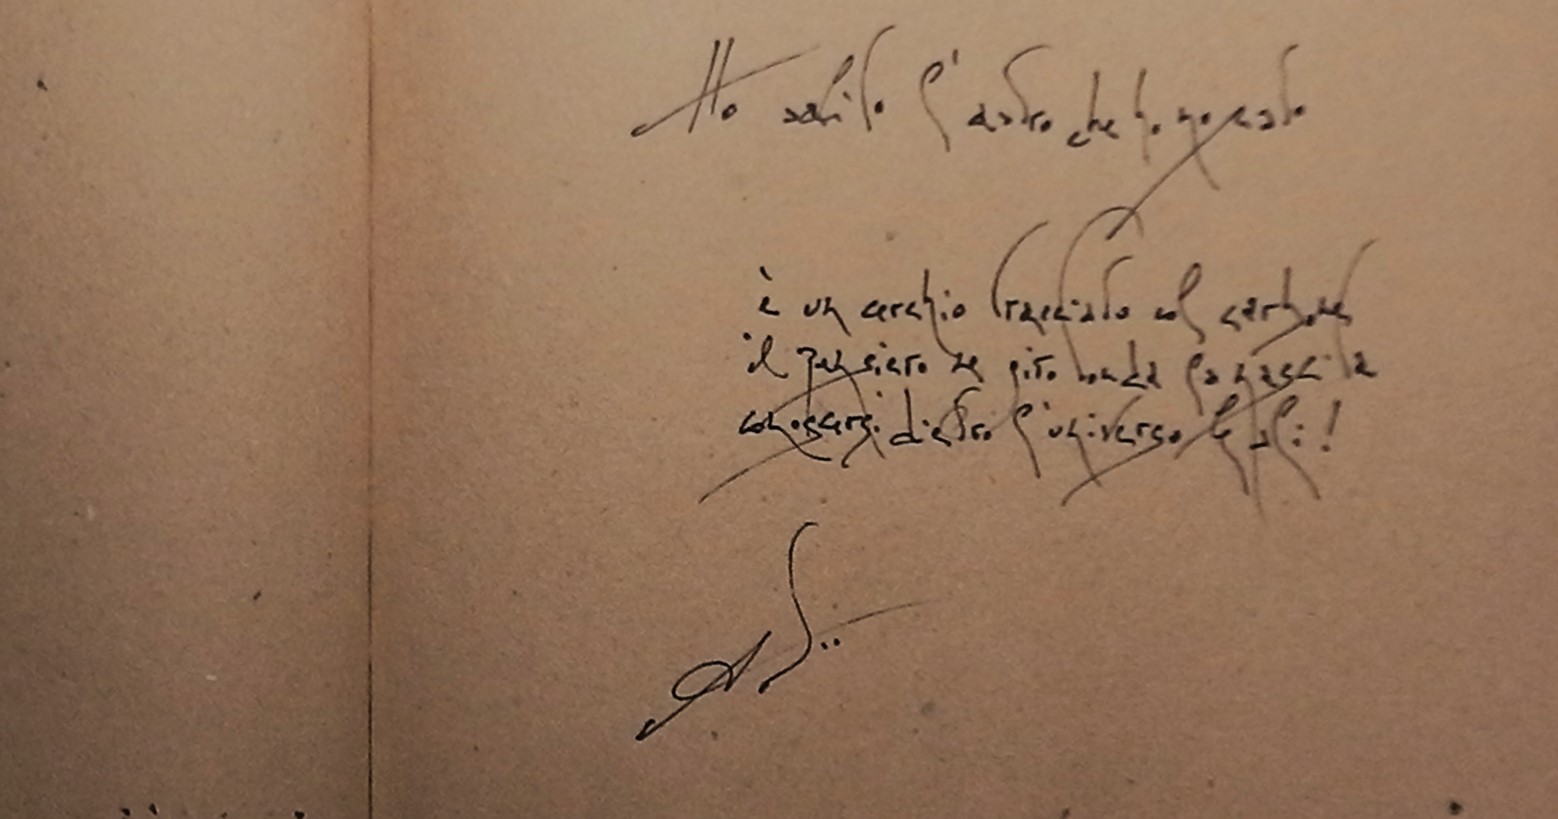 Ho salito l'astro che ho
è un cerchio tracciato col carbone
il pensiero ne gironda la nascita
conoscersi dietro l'universo le ali!